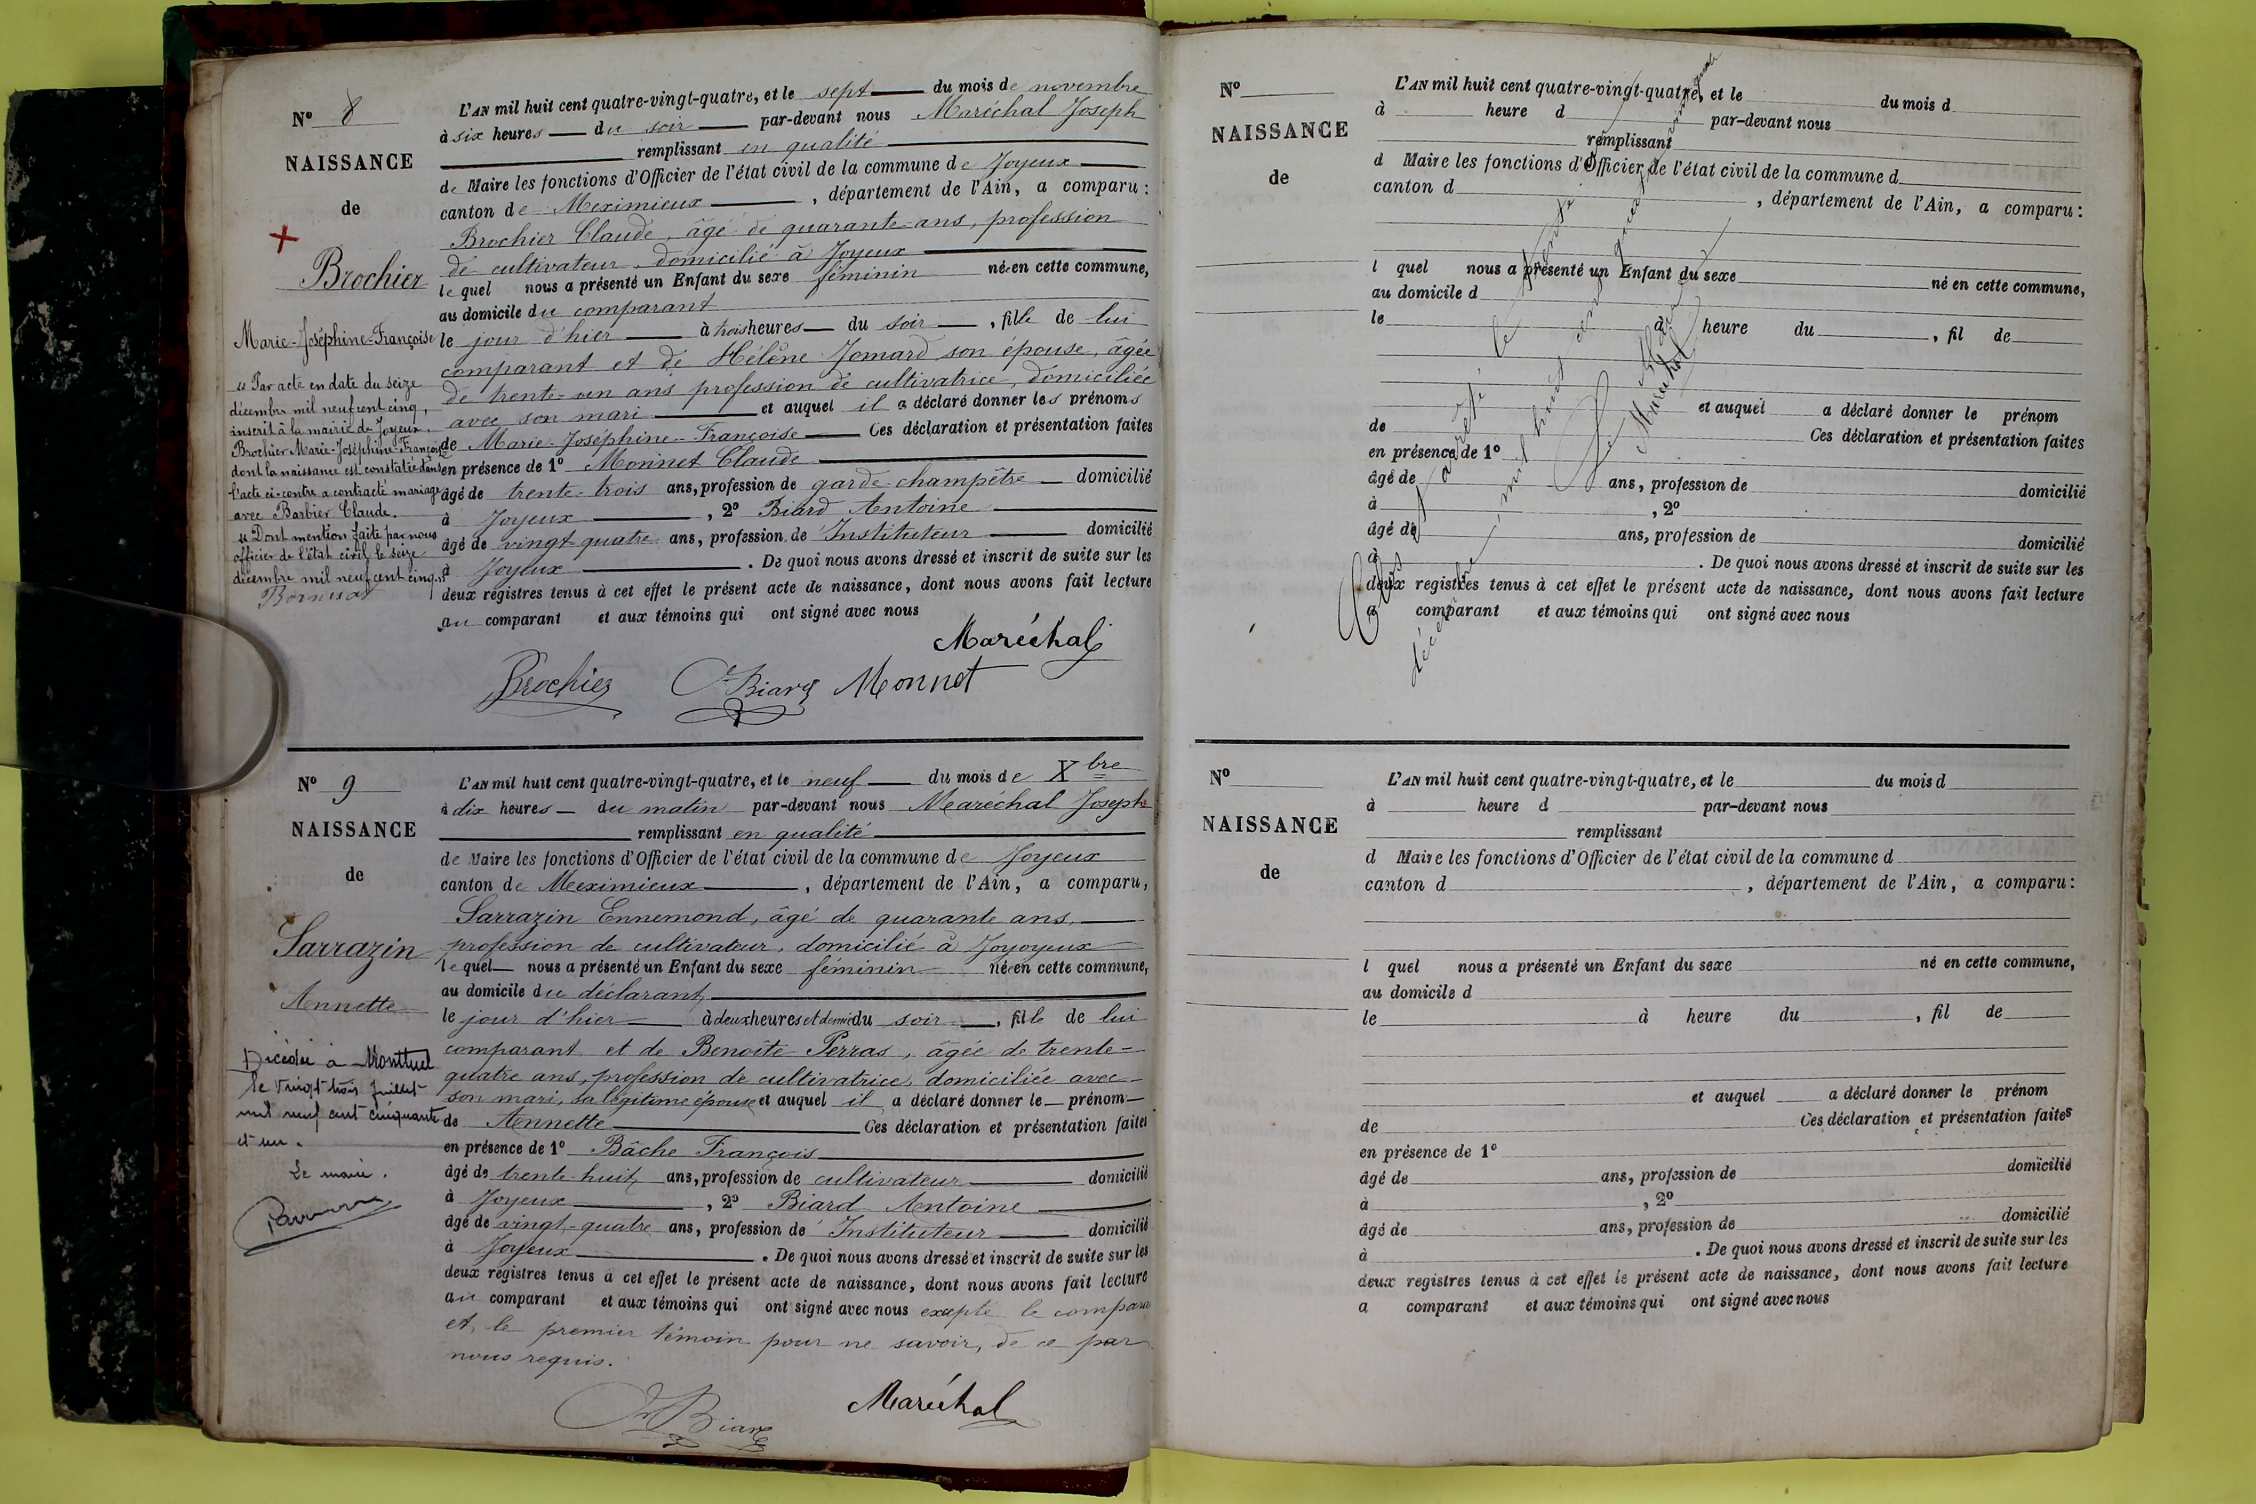 N° 8
NAISSANCE
de
Brochier
Marie-Joséphine-Françoise
"Par acte en date du seize
décembre mil neuf cent cinq,
inscrit à la mairie de Joyeux,
Brochier Marie-Joséphine-Françoise
dont la naissance est constatée dans
l'acte ci-contre a contracté mariage
avec Barbier Claude.
"Dont mention faite par nous
officier de l'état civil le seize
décembre mil neuf cent cinq."
L'AN mil huit cent quatre-vingt-quatre, et le sept du mois de novembre
à six heures du soir par-devant nous Maréchal Joseph
remplissant en qualité
de Maire les fonctions d'Officier de l'état civil de la commune de Joyeux
canton de Meximieux, département de l'Ain, a comparu :
Brochier Claude, âgé de quarante ans, profession
de cultivateur, domicilié à Joyeux
lequel nous a présenté un Enfant du sexe féminin née en cette commune,
au domicile du comparant
le jour d'hier à trois heures du soir, fille de lui
comparant et de Hélène Jomard son épouse, âgée
de trente-un ans profession de cultivatrice, domiciliée
avec son mari et auquel il a déclaré donner les prénoms
de Marie-Joséphine-Françoise Ces déclaration et présentation faites
en présence de 1° Monnet Claude
âgé de trente-trois ans, profession de garde-champêtre domicilié
à Joyeux, 2° Biard Antoine
âgé de vingt-quatre ans, profession de Instituteur domicilié
à Joyeux. De quoi nous avons dressé et inscrit de suite sur les
deux registres tenus à cet effet le présent acte de naissance, dont nous avons fait lecture
au comparant et aux témoins qui ont signé avec nous
Maréchal
Brochier Biard Monnet
N° 9
NAISSANCE
de
Sarrazin
Annette
Décédée à Montluel
le vingt trois Juillet
mil neuf cent cinquante
et un.
Le maire.
L'AN mil huit cent quatre-vingt-quatre, et le neuf du mois de Xbre
à dix heures du matin par-devant nous Maréchal Joseph
remplissant en qualité
de Maire les fonctions d'Officier de l'état civil de la commune de Joyeux
canton de Meximieux, département de l'Ain, a comparu,
Sarrazin Ennemond, âgé de quarante ans,
profession de cultivateur, domicilié à Joyoyeux
lequel nous a présenté un Enfant du sexe féminin née en cette commune,
au domicile du déclarant,
le jour d'hier à deux heures et demie du soir, fille de lui
comparant et de Benoîte Perras, âgée de trente-
quatre ans, profession de cultivatrice, domiciliée avec
son mari, sa légitime épouse et auquel il a déclaré donner le prénom
de Annette Ces déclaration et présentation faites
en présence de 1° Bâche François
âgé de trente-huit ans, profession de cultivateur domicilié
à Joyeux, 2° Biard Antoine
âgé de vingt-quatre ans, profession de Instituteur domicilié
à Joyeux. De quoi nous avons dressé et inscrit de suite sur les
deux registres tenus à cet effet le présent acte de naissance, dont nous avons fait lecture
au comparant et aux témoins qui ont signé avec nous excepté le compara
et le premier témoin pour ne savoir, de ce par
nous requis.
Biard Maréchal
N°
NAISSANCE
de
L'AN mil huit cent quatre-vingt-quatre, et le du mois d
à heure d par-devant nous
remplissant
d Maire les fonctions d'Officier de l'état civil de la commune d
canton d, département de l'Ain, a comparu :
l quel nous a présenté un Enfant du sexe né en cette commune,
au domicile d
le à heure du, fil de
et auquel a déclaré donner le prénom
de Ces déclaration et présentation faites
en présence de 1°
âgé de ans, profession de domicilié
à, 2°
âgé de ans, profession de domicilié
à. De quoi nous avons dressé et inscrit de suite sur les
deux registres tenus à cet effet le présent acte de naissance, dont nous avons fait lecture
a comparant et aux témoins qui ont signé avec nous
Clos et arrêté le trente et un
décembre mil huit cent quatre-vingt-quatre
Le Maire
Maréchal
N°
NAISSANCE
de
L'AN mil huit cent quatre-vingt-quatre, et le du mois d
à heure d par-devant nous
remplissant
d Maire les fonctions d'Officier de l'état civil de la commune d
canton d, département de l'Ain, a comparu :
l quel nous a présenté un Enfant du sexe né en cette commune,
au domicile d
le à heure du, fil de
et auquel a déclaré donner le prénom
de Ces déclaration et présentation faites
en présence de 1°
âgé de ans, profession de domicilié
à, 2°
âgé de ans, profession de domicilié
à. De quoi nous avons dressé et inscrit de suite sur les
deux registres tenus à cet effet le présent acte de naissance, dont nous avons fait lecture
a comparant et aux témoins qui ont signé avec nous